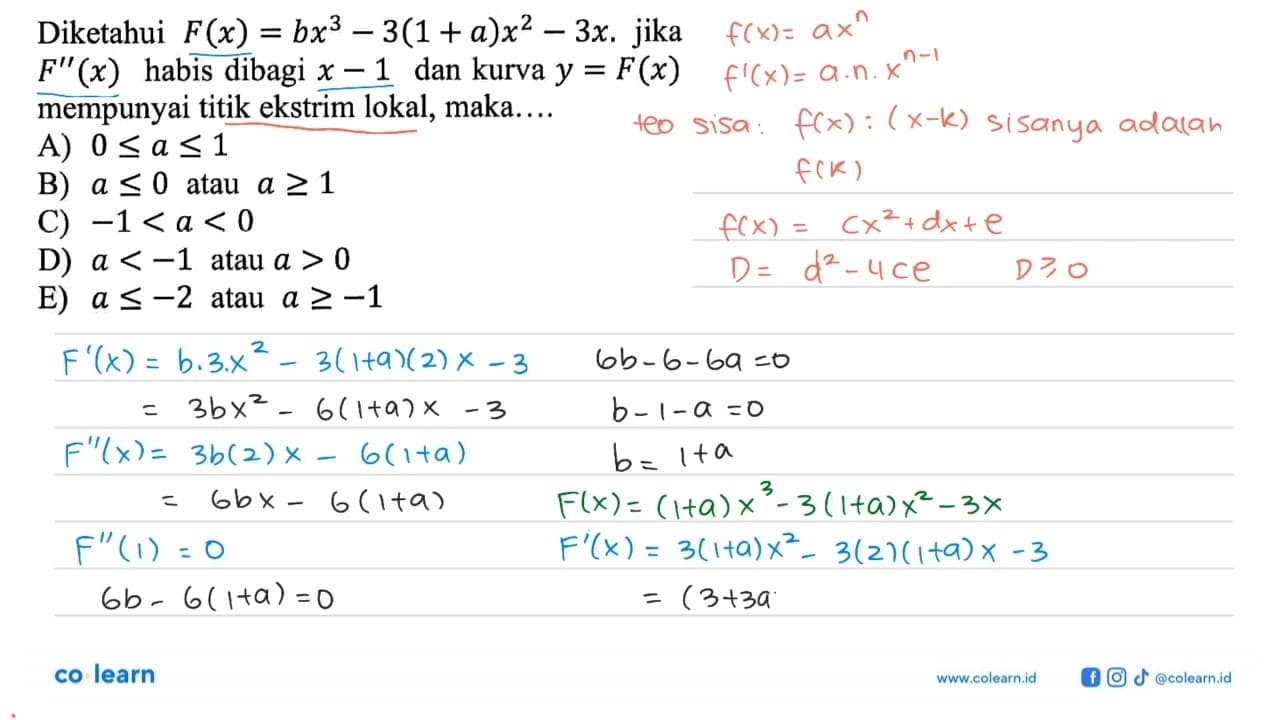 Diketahui F(x) = bx³ − 3(1 + a)x² − 3x. jika
F''(x) habis dibagi x − 1 dan kurva y = F(x)
mempunyai titik ekstrim lokal, maka....
A) 0 ≤ a ≤ 1
B) a ≤ 0 atau a ≥ 1
C) −1 < a < 0
D) a < −1 atau a > 0
E) a ≤ −2 atau a ≥ −1
f(x) = ax^n
f'(x) = a.n.x^(n-1)
teo sisa: f(x) : (x-k) sisanya adalah
f(k)
f(x) = cx² + dx + e
D = d² - 4ce D ≥ 0
F'(x) = b.3.x² - 3(1+a)(2)x - 3
= 3bx² - 6(1+a)x - 3
F''(x) = 3b(2)x - 6(1+a)
= 6bx - 6(1+a)
F''(1) = 0
6b - 6(1+a) = 0
6b - 6 - 6a = 0
b - 1 - a = 0
b = 1+a
F(x) = (1+a)x³ - 3(1+a)x² - 3x
F'(x) = 3(1+a)x² - 3(2)(1+a)x - 3
= (3+3a
co learn
www.colearn.id
@colearn.id